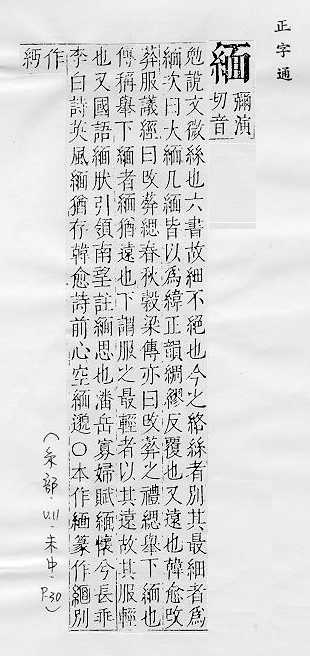 正字通
緬 彌演切音
勉說文微絲也六書故細不絕也今之絡絲者別其最細者爲
緬次曰大緬凡緬皆以爲緯正韻綢繆反覆也又遠也韓愈改
葬服議經曰改葬緦春秋穀梁傳亦曰改葬之禮緦舉下緬也
傳稱舉下緬者緬猶遠也下謂服之最輕者以其遠故其服輕
也又國語緬狀引領南望註緬思也潘岳寡婦賦緬懷兮長乖
李白詩英風緬猶存韓愈詩前心空緬邈○本作緬篆作別
作
(糸·部·U.11·未中·P.30)